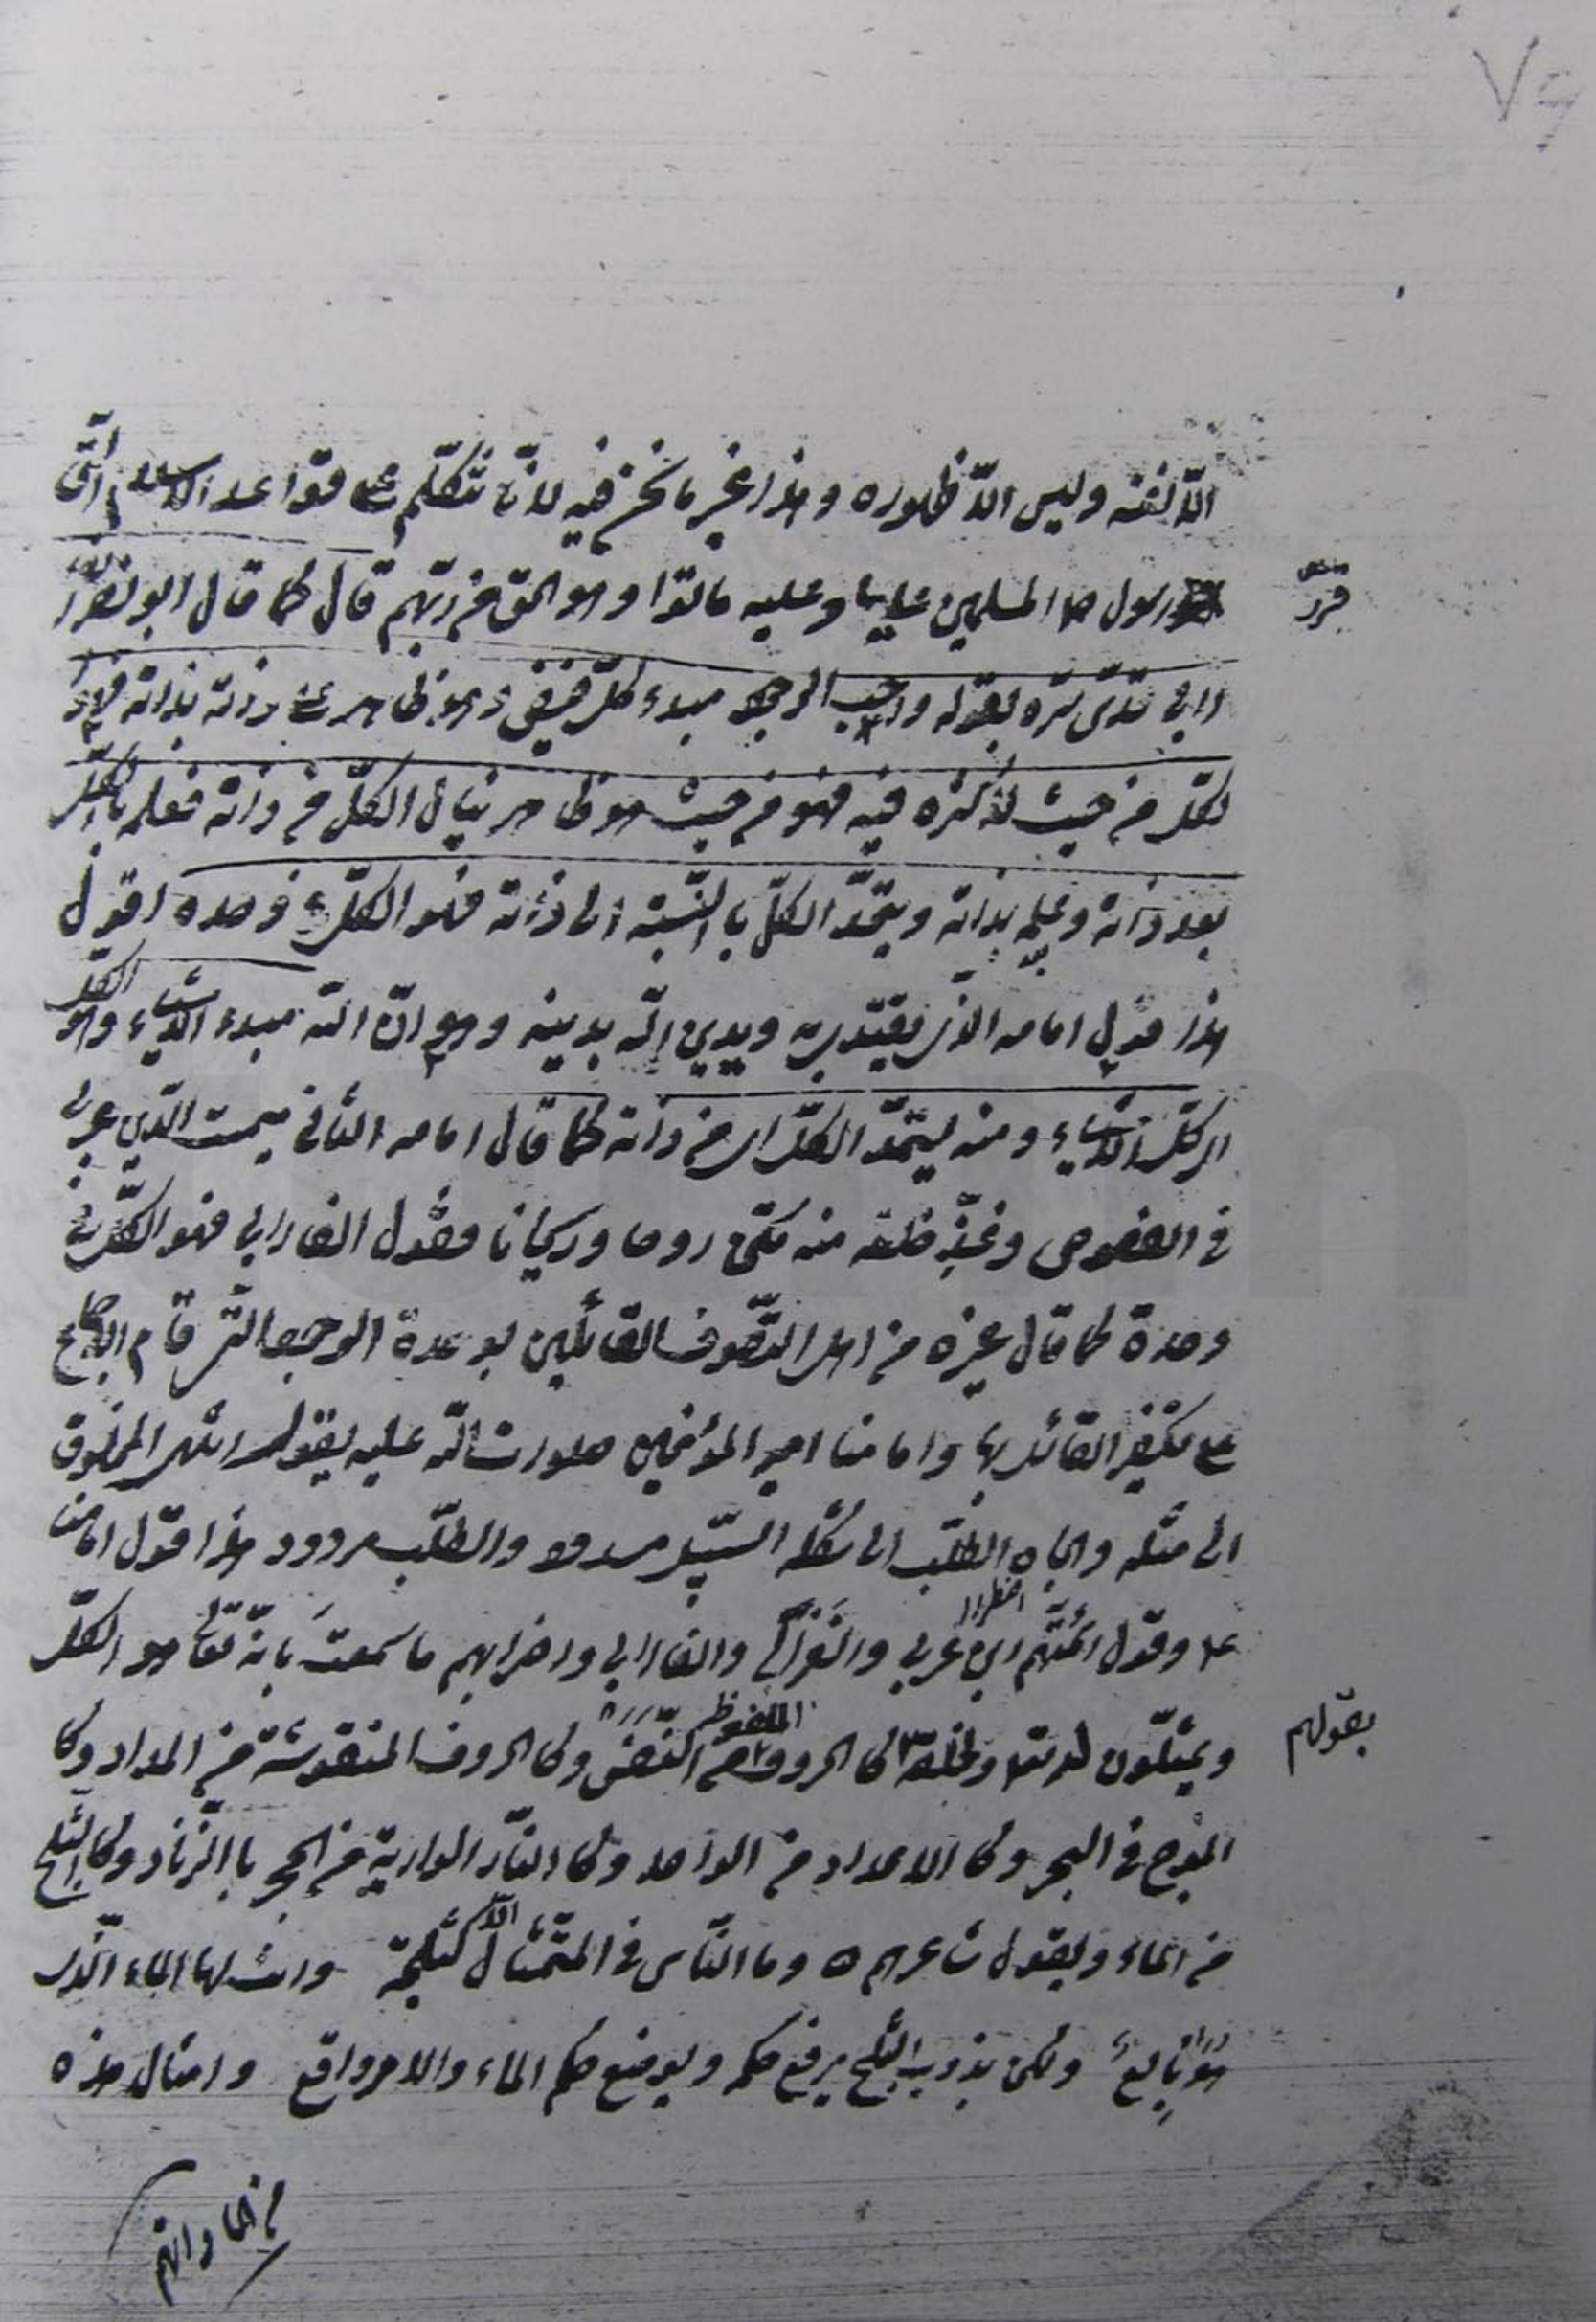 ٧٩
الّا نفسه وليس الّا ظهوره وهذا غير ما نحن فيه لانّا نتكلّم على قواعد الاسلام الّتى
قرّر
رسول المسلمين عليها وعليه ماتوا وهو الحق من ربّهم قال كما قال ابو نصر الفا
رابى قدّس سرّه بقوله واجب الوجود مبدء كلّ فيض وهو ظاهر على ذاته بذاته فله
الكلّ من حيث لا كثره فيه فهو من حيث هو ظاهر ينال الكلّ من ذاته فعلمه بالكلّ
بعد ذاته وعلمه بذاته ويتّحد الكلّ بالنّسبة الى ذاته فهو الكلّ فى وحده اقول
هذا قول امامه الّذى يقتدى به ويدين اللّه بدينه وهو انّ اللّه مبدء الاشياء وهو الكلّ
اى كلّ الاشياء ومنه يستمدّ الكلّ اى من ذاته كما قال امامه الثّانى مميت الدّين عربى
فى الفصوص وغذّ خلقه منه تكن روحا وريحانا فقول الفارابى فهو الكلّ فى
وحدة كما قال غيره من اهل التّصوف القائلين بوحدة الوجود الّتى قام الاجماع
على تكفير القائل بها وامامنا امير المؤمنين صلوات اللّه عليه يقول انتهى المخلوق
الى مثله والجاه الطّلب الى شكله السّبيل مسدود والطّلب مردود هذا قول امامنا
ع وقول ائمّتهم ابن عربى والغزّالى والفارابى واضرابهم ما سمعت بانّه تعالى هو الكلّ
اضطرارا
بقولهم
ويمثّلون له ولخلقه كالحروف من النّفس وكالحروف المنقوشة من المداد وكا
اللفظيه
لموج فى البحر وكالاعداد من الواحد وكالنّار الوارية من الحجر بالزّناد وكالثّلج
من الماء وبقول شاعرهم وما النّاس فى التّمثال الّا كثلجة وانت لها الماء الّذى
هو نابع ولكن بذوب الثّلج يرفع حكمه ويوضع حكم الماء والامر واقع وامثال هذه